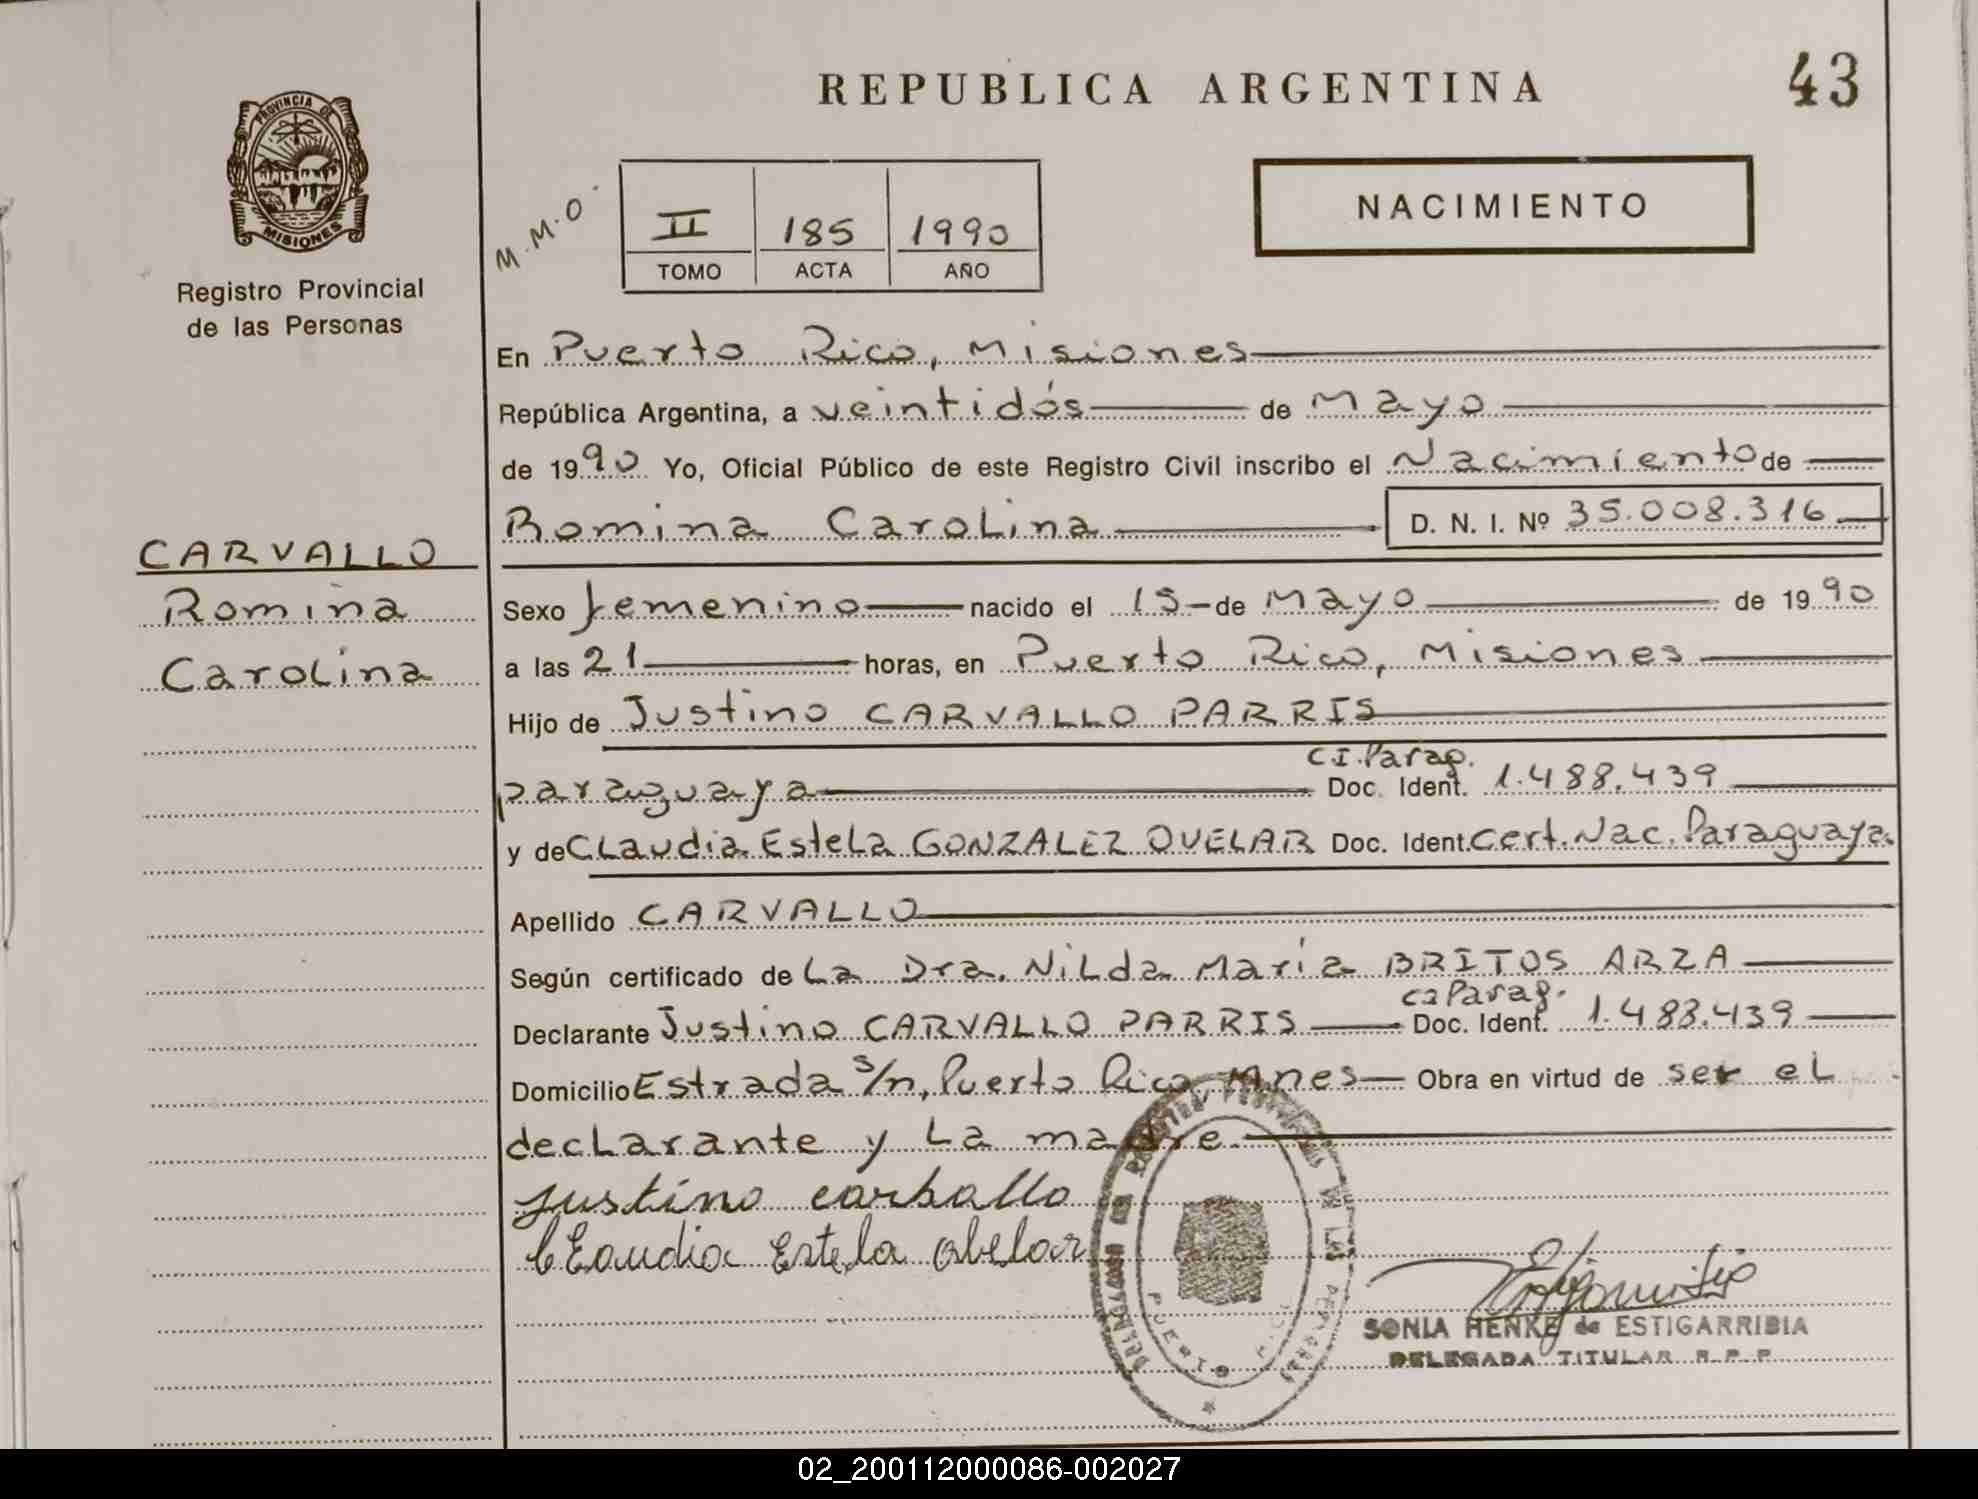 REPUBLICA ARGENTINA
43
PROVINCIA DE
MISIONES
Registro Provincial
de las Personas
M.M.O.
II
185
1990
TOMO
ACTA
AÑO
NACIMIENTO
En Puerto Rico, Misiones
República Argentina, a veintidós de Mayo
de 1990 Yo, Oficial Público de este Registro Civil inscribo el Nacimiento de
Romina Carolina D. N. I. Nº 35.008.316
CARVALLO
Romina
Carolina
Sexo femenino nacido el 15 de Mayo de 1990
a las 21 horas, en Puerto Rico, Misiones
Hijo de Justino CARVALLO PARRIS
C.I. Parag.
paraguaya Doc. Ident. 1.488.439
y de Claudia Estela GONZALEZ OVELAR Doc. Ident. Cert. Nac. Paraguaya
Apellido CARVALLO
Según certificado de La Dra. Nilda María BRITOS ARZA
CI Parag.
Declarante Justino CARVALLO PARRIS Doc. Ident. 1.488.439
Domicilio Estrada s/n, Puerto Rico, Mnes Obra en virtud de ser el
declarante y La madre
Justino carballo
Claudia Estela Obelar
SONIA HENKE de ESTIGARRIBIA
DELEGADA TITULAR R.P.P.
02_200112000086-002027